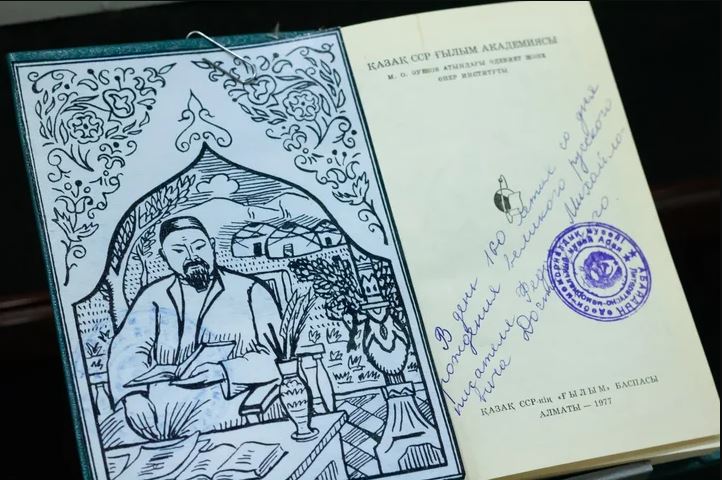 ҚАЗАҚ ССР ҒЫЛЫМ АКАДЕМИЯСЫ
М. О. ӘУЕЗОВ АТЫНДАҒЫ ӘДЕБИЕТ ЖӘНЕ
ӨНЕР ИНСТИТУТЫ
В день 160 летия со дня
рождения великого русского
писателя Федора Михайло-
вича Достоевского.
ҚАЗАҚ ССР-нің «ҒЫЛЫМ» БАСПАСЫ
АЛМАТЫ — 1977